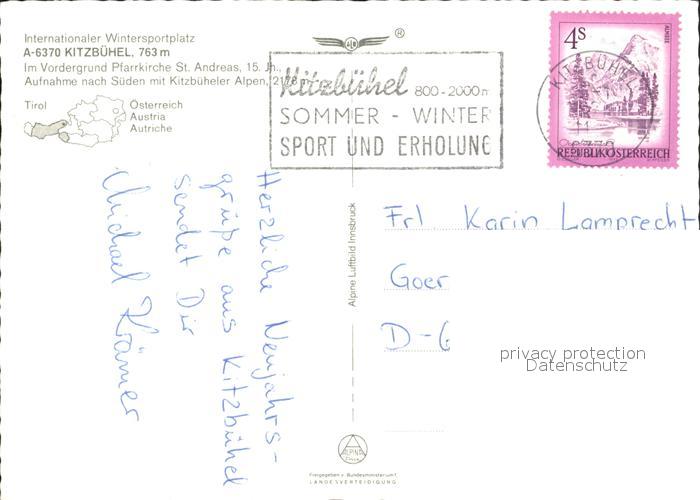 Internationaler Wintersportplatz
A-6370 KITZBÜHEL, 763 m
Im Vordergrund Pfarrkirche St. Andreas, 15. Jh.
Aufnahme nach Süden mit Kitzbüheler Alpen,
Tirol
Österreich
Austria
Autriche
®
Kitzbühel 800-2000m
SOMMER - WINTER
SPORT UND ERHOLUNG
KITZBÜHEL
4S
ALMSEE
REPUBLIK ÖSTERREICH
Herzliche Neujahrs-
grüße aus Kitzbühel
sendet Dir
Michael Krämer
Alpine Luftbild Innsbruck
Frl Karin Lamprecht
Goer
D-6
privacy protection
Datenschutz
ALPINE
Freigegeben v. Bundesministerium f.
LANDESVERTEIDIGUNG